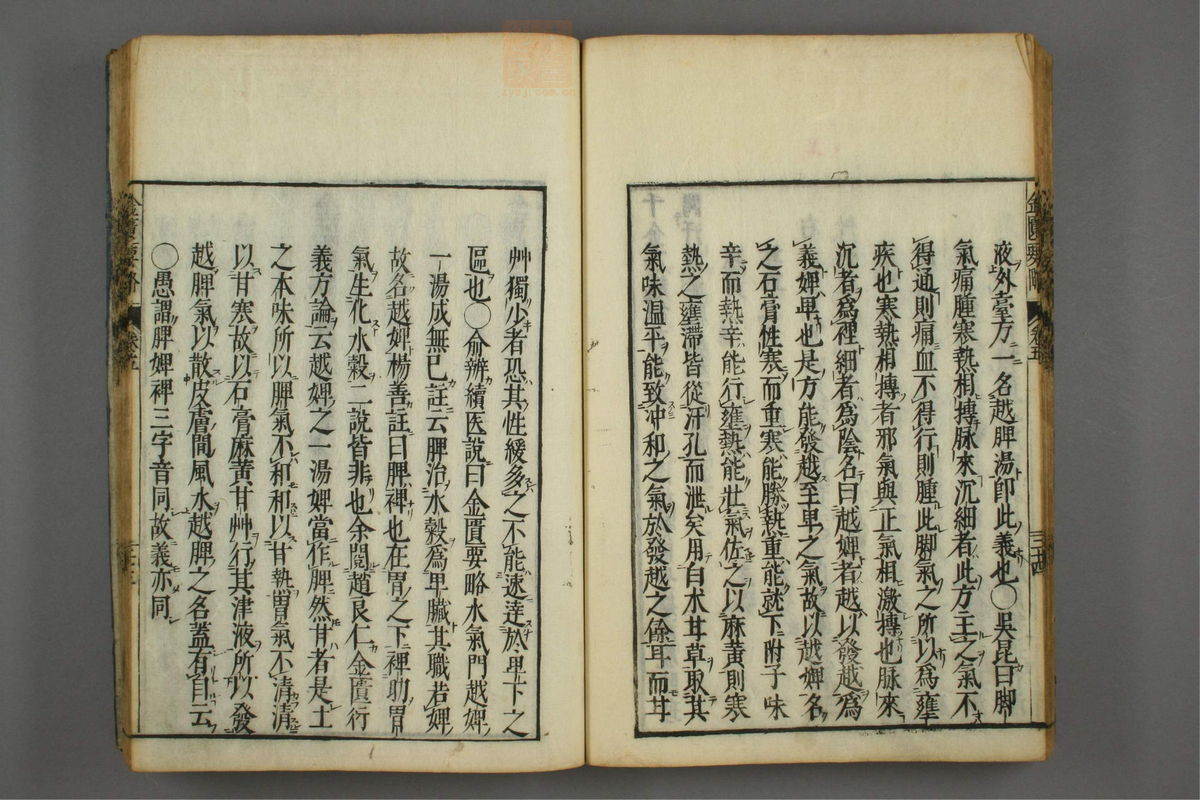 液外臺方一名越脾湯卽此義也○吳昆曰脚
氣痛腫寒熱相搏脉來沉細者此方主之氣不
得通則痛血不得行則腫此脚氣之所以爲壅
疾也寒熱相搏者邪氣與正氣相激搏也脉來
沉者爲裡細者爲陰名曰越婢者越以發越爲
義婢卑也是方能發越至卑之氣故以越婢名
之石膏性寒而重寒能勝熱重能就下附子味
辛而熱辛能行壅熱能壯氣佐之以麻黃則寒
熱之壅滯皆從汗孔而泄矣用白朮甘草取其
氣味温平能致冲和之氣於發越之餘耳而甘
艸獨少者恐其性緩多之不能速達於卑下之
區也○俞辨續医說曰金匱要略水氣門越婢
一湯成無已註云脾治水穀爲卑臟其職若婢
故名越婢楊善註曰脾裨也在胃之下裨助胃
氣生化水穀二說皆非也余閱趙良仁金匱衍
義方論云越婢之一湯婢當作脾然甘者是土
之本味所以脾氣不和和以甘熱胃氣不清清
以甘寒故以石膏麻黃甘艸行其津液所以發
越脾氣以散皮膚間風水越脾之名蓋有自云
○愚謂脾婢裨三字音同故義亦同
金匱要略
卷五
三十四